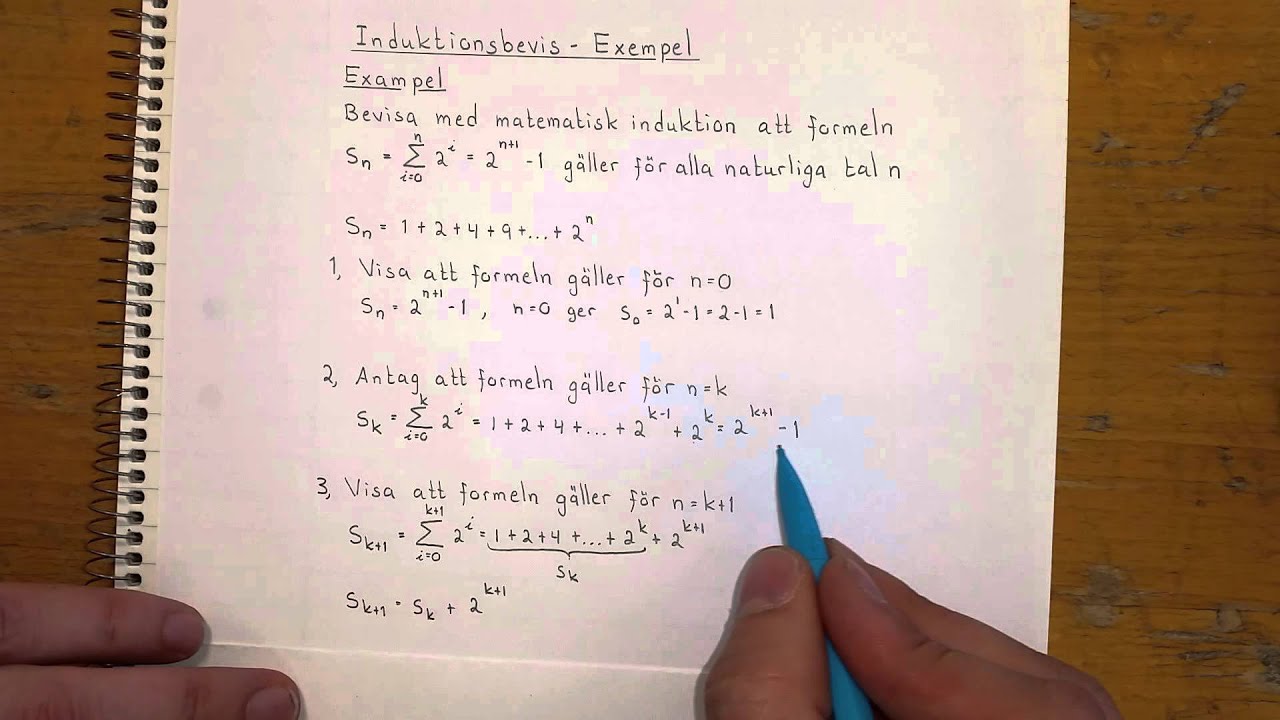 Induktionsbevis - Exempel
Exampel
Bevisa med matematisk induktion att formeln
Sₙ = ∑ⁿᵢ₌₀ 2ⁱ = 2ⁿ⁺¹ - 1 gäller för alla naturliga tal n
Sₙ = 1 + 2 + 4 + 9 + ... + 2ⁿ
1, Visa att formeln gäller för n=0
Sₙ = 2ⁿ⁺¹ - 1 , n=0 ger S₀ = 2¹ - 1 = 2 - 1 = 1
2, Antag att formeln gäller för n=k
Sₖ = ∑ᵏᵢ₌₀ 2ⁱ = 1 + 2 + 4 + ... + 2ᵏ⁻¹ + 2ᵏ = 2ᵏ⁺¹ - 1
3, Visa att formeln gäller för n=k+1
Sₖ₊₁ = ∑ᵏ⁺¹ᵢ₌₀ 2ⁱ = 1 + 2 + 4 + ... + 2ᵏ + 2ᵏ⁺¹
Sₖ
Sₖ₊₁ = Sₖ + 2ᵏ⁺¹